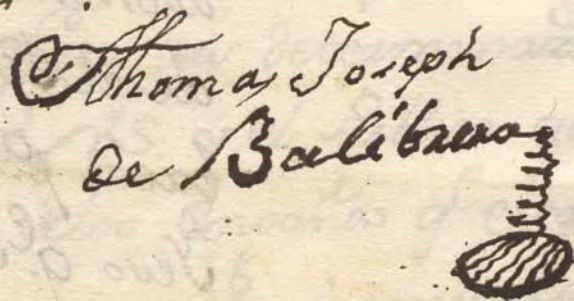 Thomas Joseph
de Balibrera